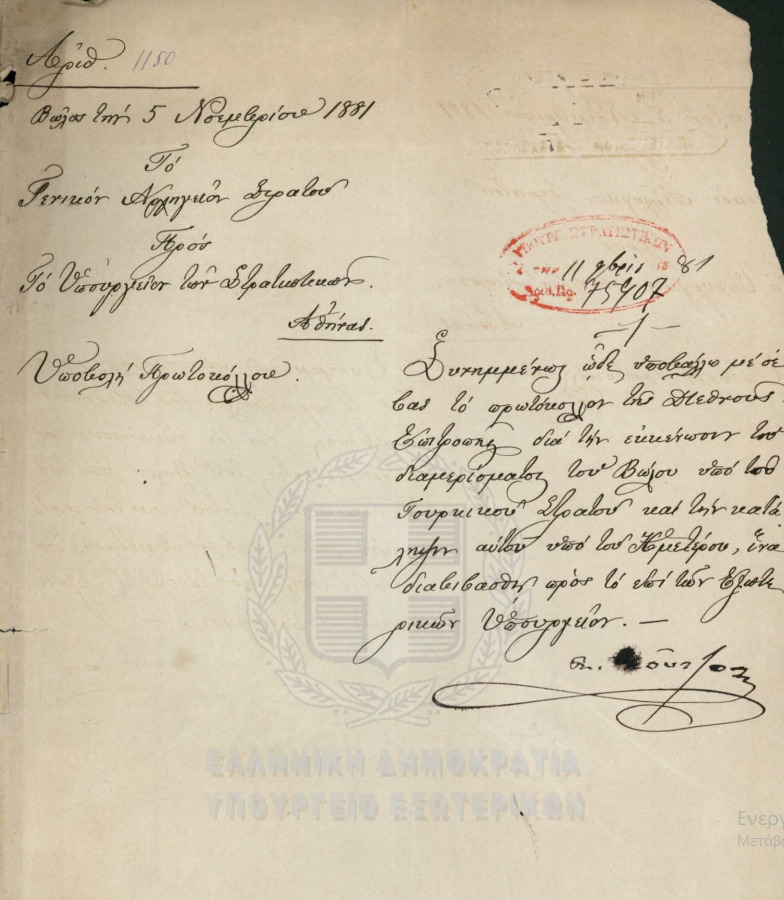 Αριθ. 1150
Βώλος τήν 5 Νοεμβρίου 1881
Τό
Γενικόν Αρχηγείον Στρατού
Πρός
Τό Υπουργείον των Στρατιωτικών.
Αθήνας.
Υποβολή Πρωτοκόλλου.
ΥΠΟΥΡΓ ΣΤΡΑΤΙΩΤΙΚΩΝ
11 9βρίου 81
Αριθ. Πρ. 75907
Συνημμένως ώδε υποβάλλω μέ σέ
βας τό πρωτόκολλον της Διεθνούς
Επιτροπής διά τήν εκκένωσιν του
διαμερίσματος του Βώλου υπό του
Τουρκικού Στρατού και τήν κατά
ληψιν αυτού υπό του Ημετέρου, ίνα
διαβιβασθή πρός τό επί των Εξωτε
ρικών Υπουργείον. —
ΕΛΛΗΝΙΚΗ ΔΗΜΟΚΡΑΤΙΑ
ΥΠΟΥΡΓΕΙΟ ΕΞΩΤΕΡΙΚΩΝ
Ενεργ
Μετάβα